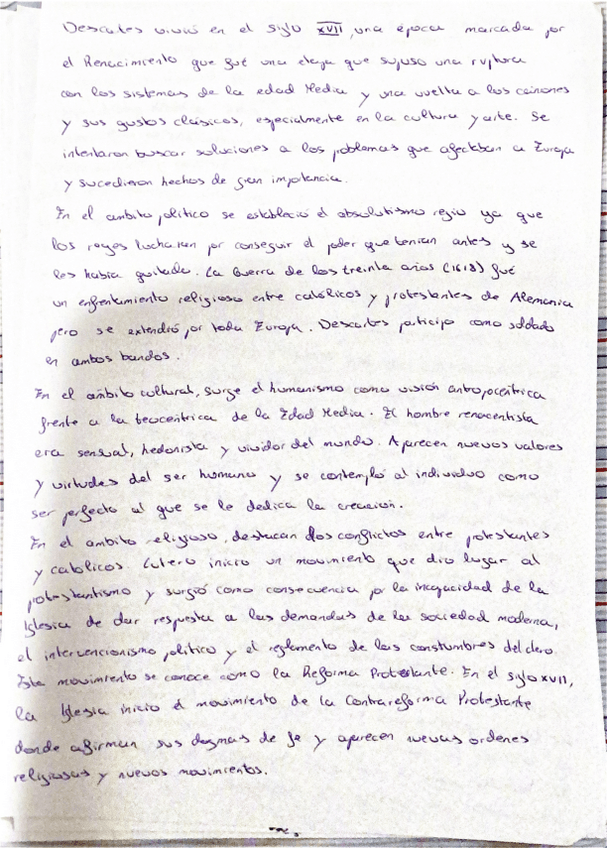 Descartes vivió en el siglo XVII, una época marcada por
el Renacimiento que fué una etapa que supuso una ruptura
con los sistemas de la edad Media y una vuelta a los cánones
y sus gustos clásicos, especialmente en la cultura y arte. Se
intentaron buscar soluciones a los problemas que afectaban a Europa
y sucedieron hechos de gran importancia.
En el ámbito político se estableció el absolutismo regio ya que
los reyes lucharan por conseguir el poder que tenían antes y se
les había quitado. La Guerra de los treinta años (1618) fué
un enfrentamiento religioso entre católicos y protestantes de Alemania
pero se extendió por toda Europa. Descartes participó como soldado
en ambos bandos.
En el ámbito cultural, surge el humanismo como visión antropocéntrica
frente a la teocéntrica de la Edad Media. El hombre renacentista
era sensual, hedonista y vividor del mundo. Aparecen nuevos valores
y virtudes del ser humano y se contempló al individuo como
ser perfecto al que se le dedica la creación.
En el ambito religioso, destacan dos conflictos entre protestantes
y católicos. Lutero inició un movimiento que dio lugar al
protestantismo y surgió como consecuencia por la incapacidad de la
Iglesia de dar respuesta a las demandas de la sociedad moderna,
el intervencionismo político y el reglemento de las constumbres del clero.
Este movimiento se conoce como la Reforma Protestante. En el siglo XVII,
la Iglesia inicio el movimiento de la Contrareforma Protestante
donde afirman sus dogmas de fe y aparecen nuevas ordenes
religiosas y nuevos movimientos.